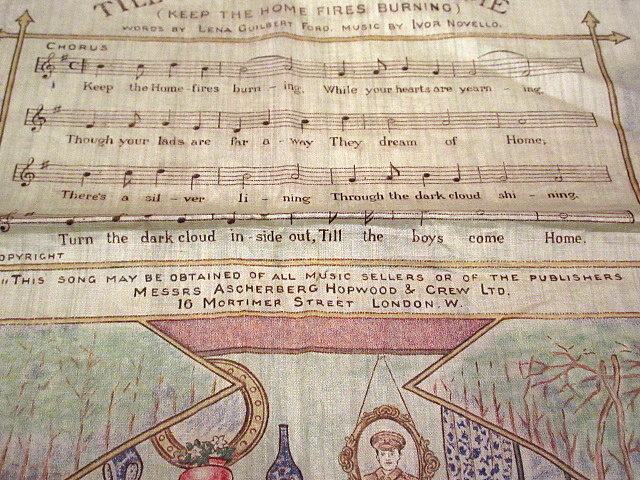 TILL
(KEEP THE HOME FIRES BURNING)
WORDS BY LENA GUILBERT FORD. MUSIC BY IVOR NOVELLO.
CHORUS
Keep the Home-fires burn - ing, While your hearts are yearn - ing,
Though your lads are far a - way They dream of Home;
There's a sil - ver li - ning Through the dark cloud shi - ning.
Turn the dark cloud in - side out, Till the boys come Home.
OPYRIGHT
"THIS SONG MAY BE OBTAINED OF ALL MUSIC SELLERS OR OF THE PUBLISHERS
MESSRS ASCHERBERG HOPWOOD & CREW LTD.
16 MORTIMER STREET LONDON.W.